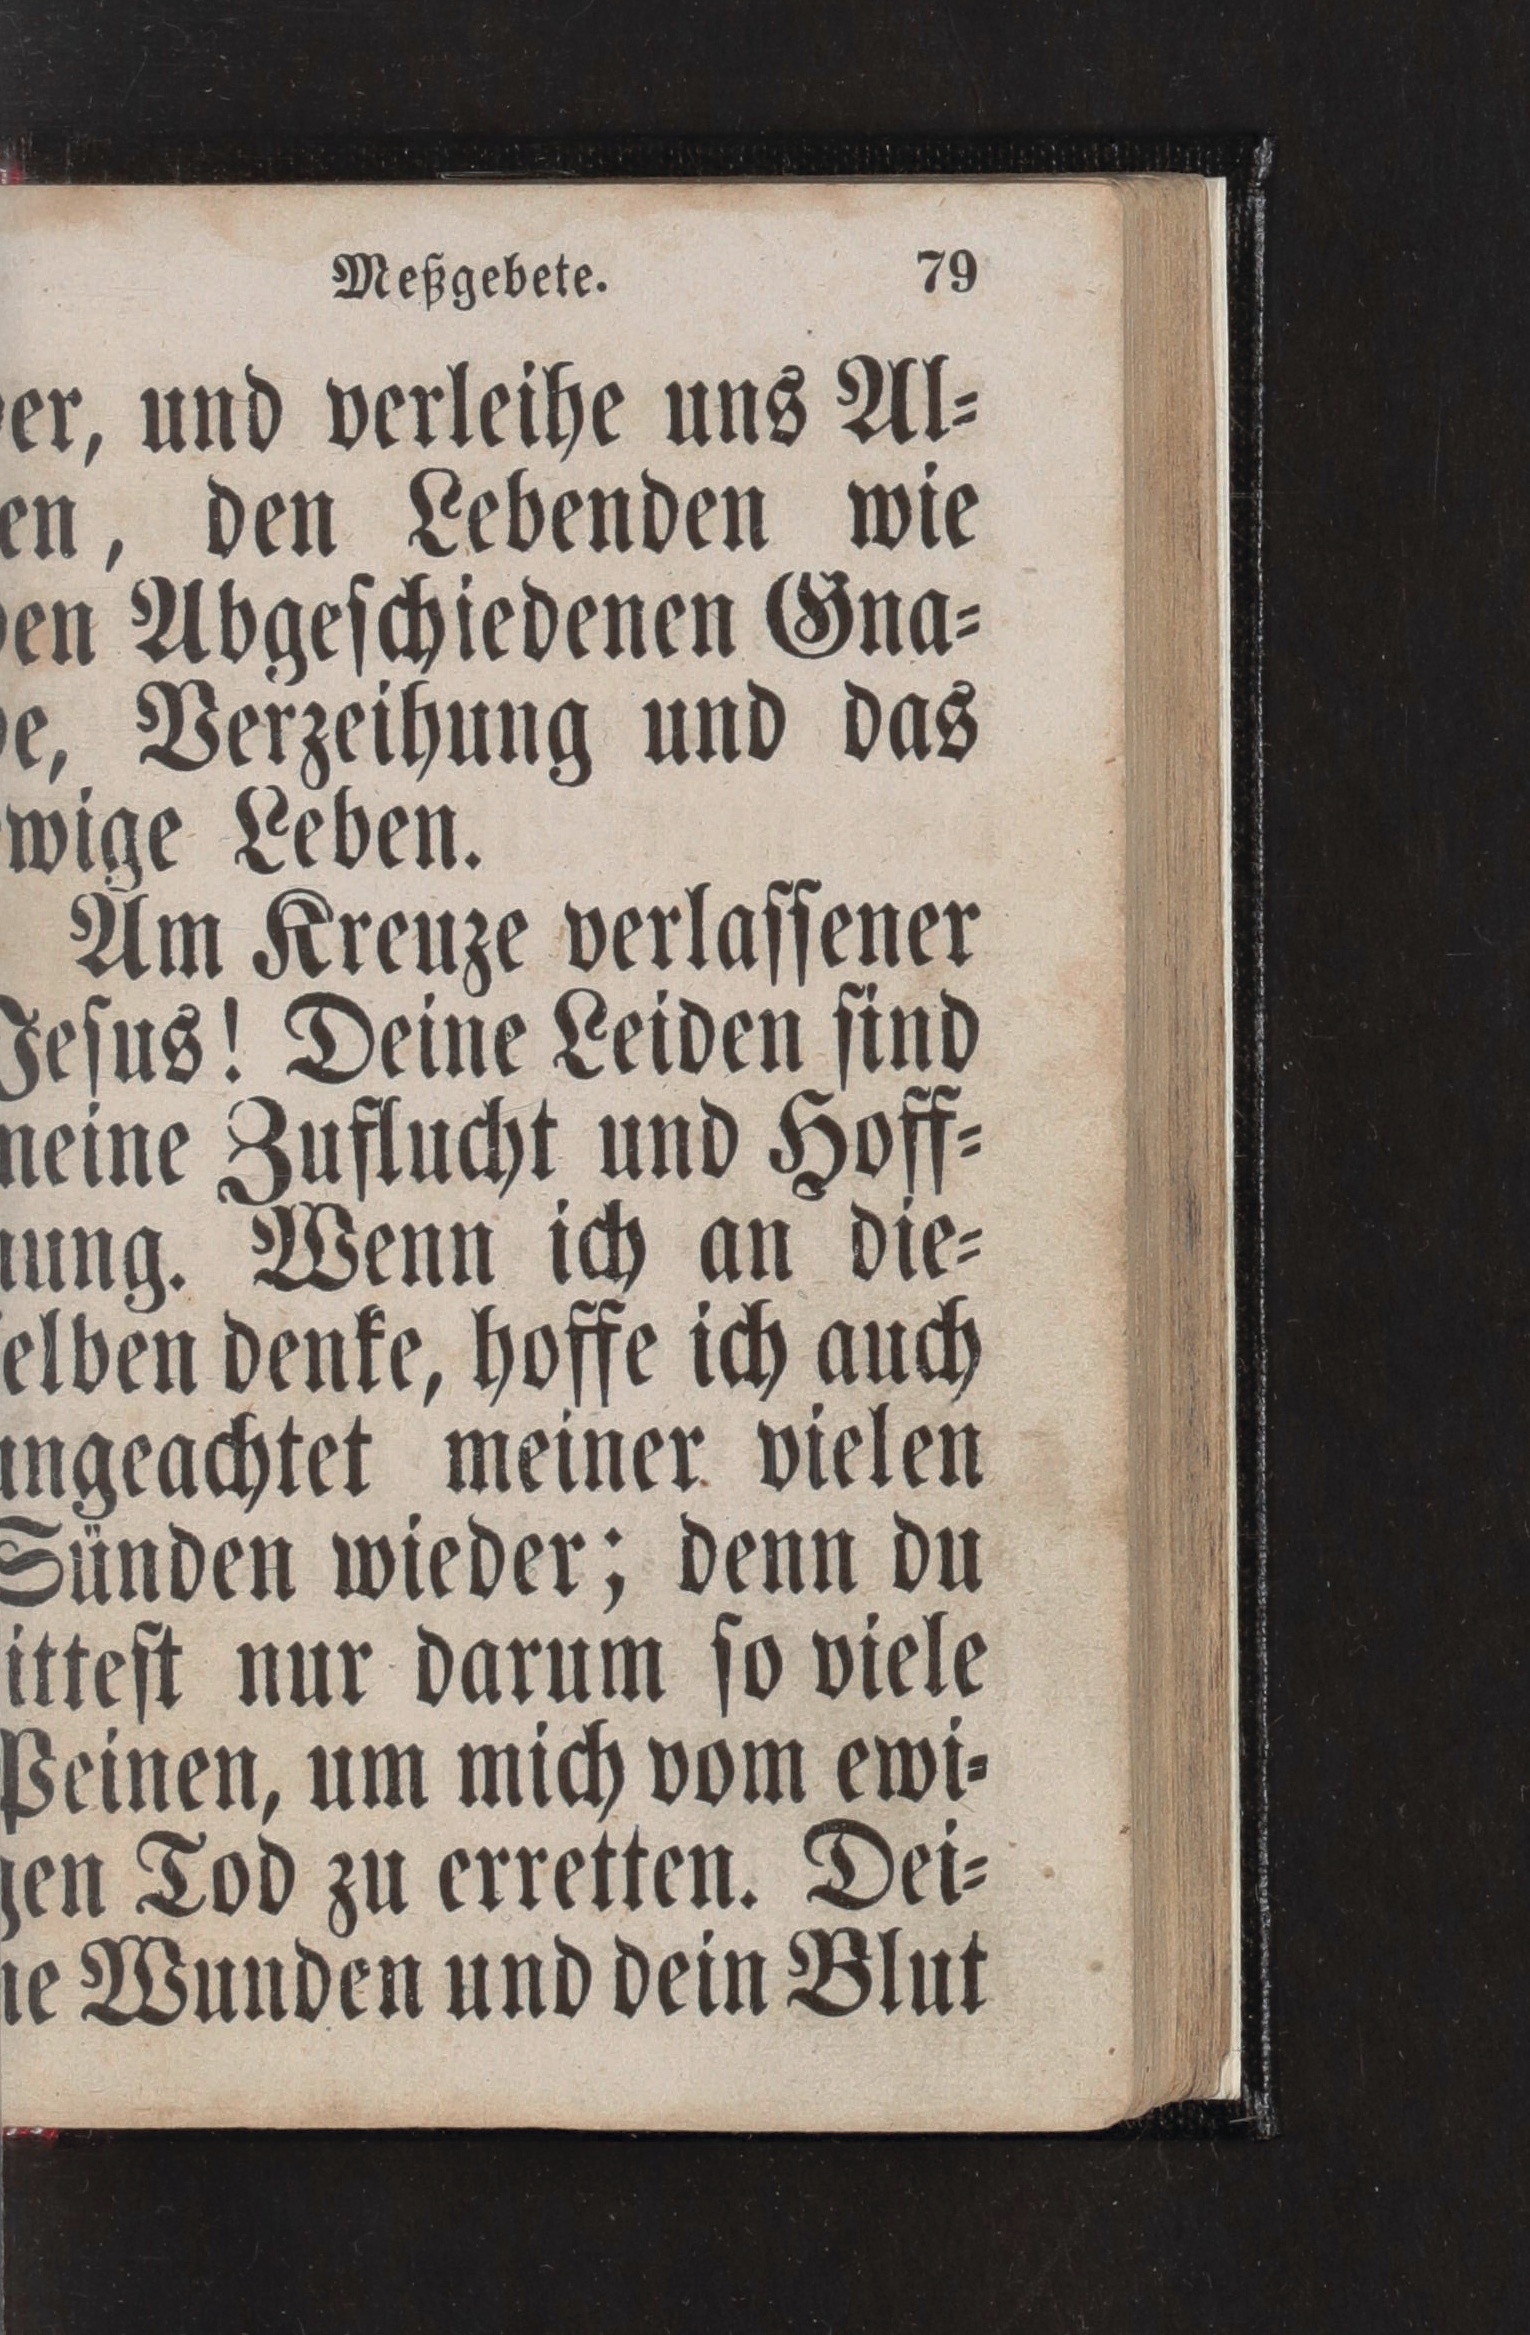 Meßgebete. 79
er, und verleihe uns Al⸗
en, den Lebenden wie
den Abgeſchiedenen Gna⸗
de, Verzeihung und das
ewige Leben.
Am Kreuze verlaſſener
Jeſus! Deine Leiden ſind
meine Zuflucht und Hoff⸗
nung. Wenn ich an die⸗
ſelben denke, hoffe ich auch
ungeachtet meiner vielen
Sünden wieder; denn du
litteſt nur darum ſo viele
Peinen, um mich vom ewi⸗
gen Tod zu erretten. Dei⸗
ne Wunden und dein Blut